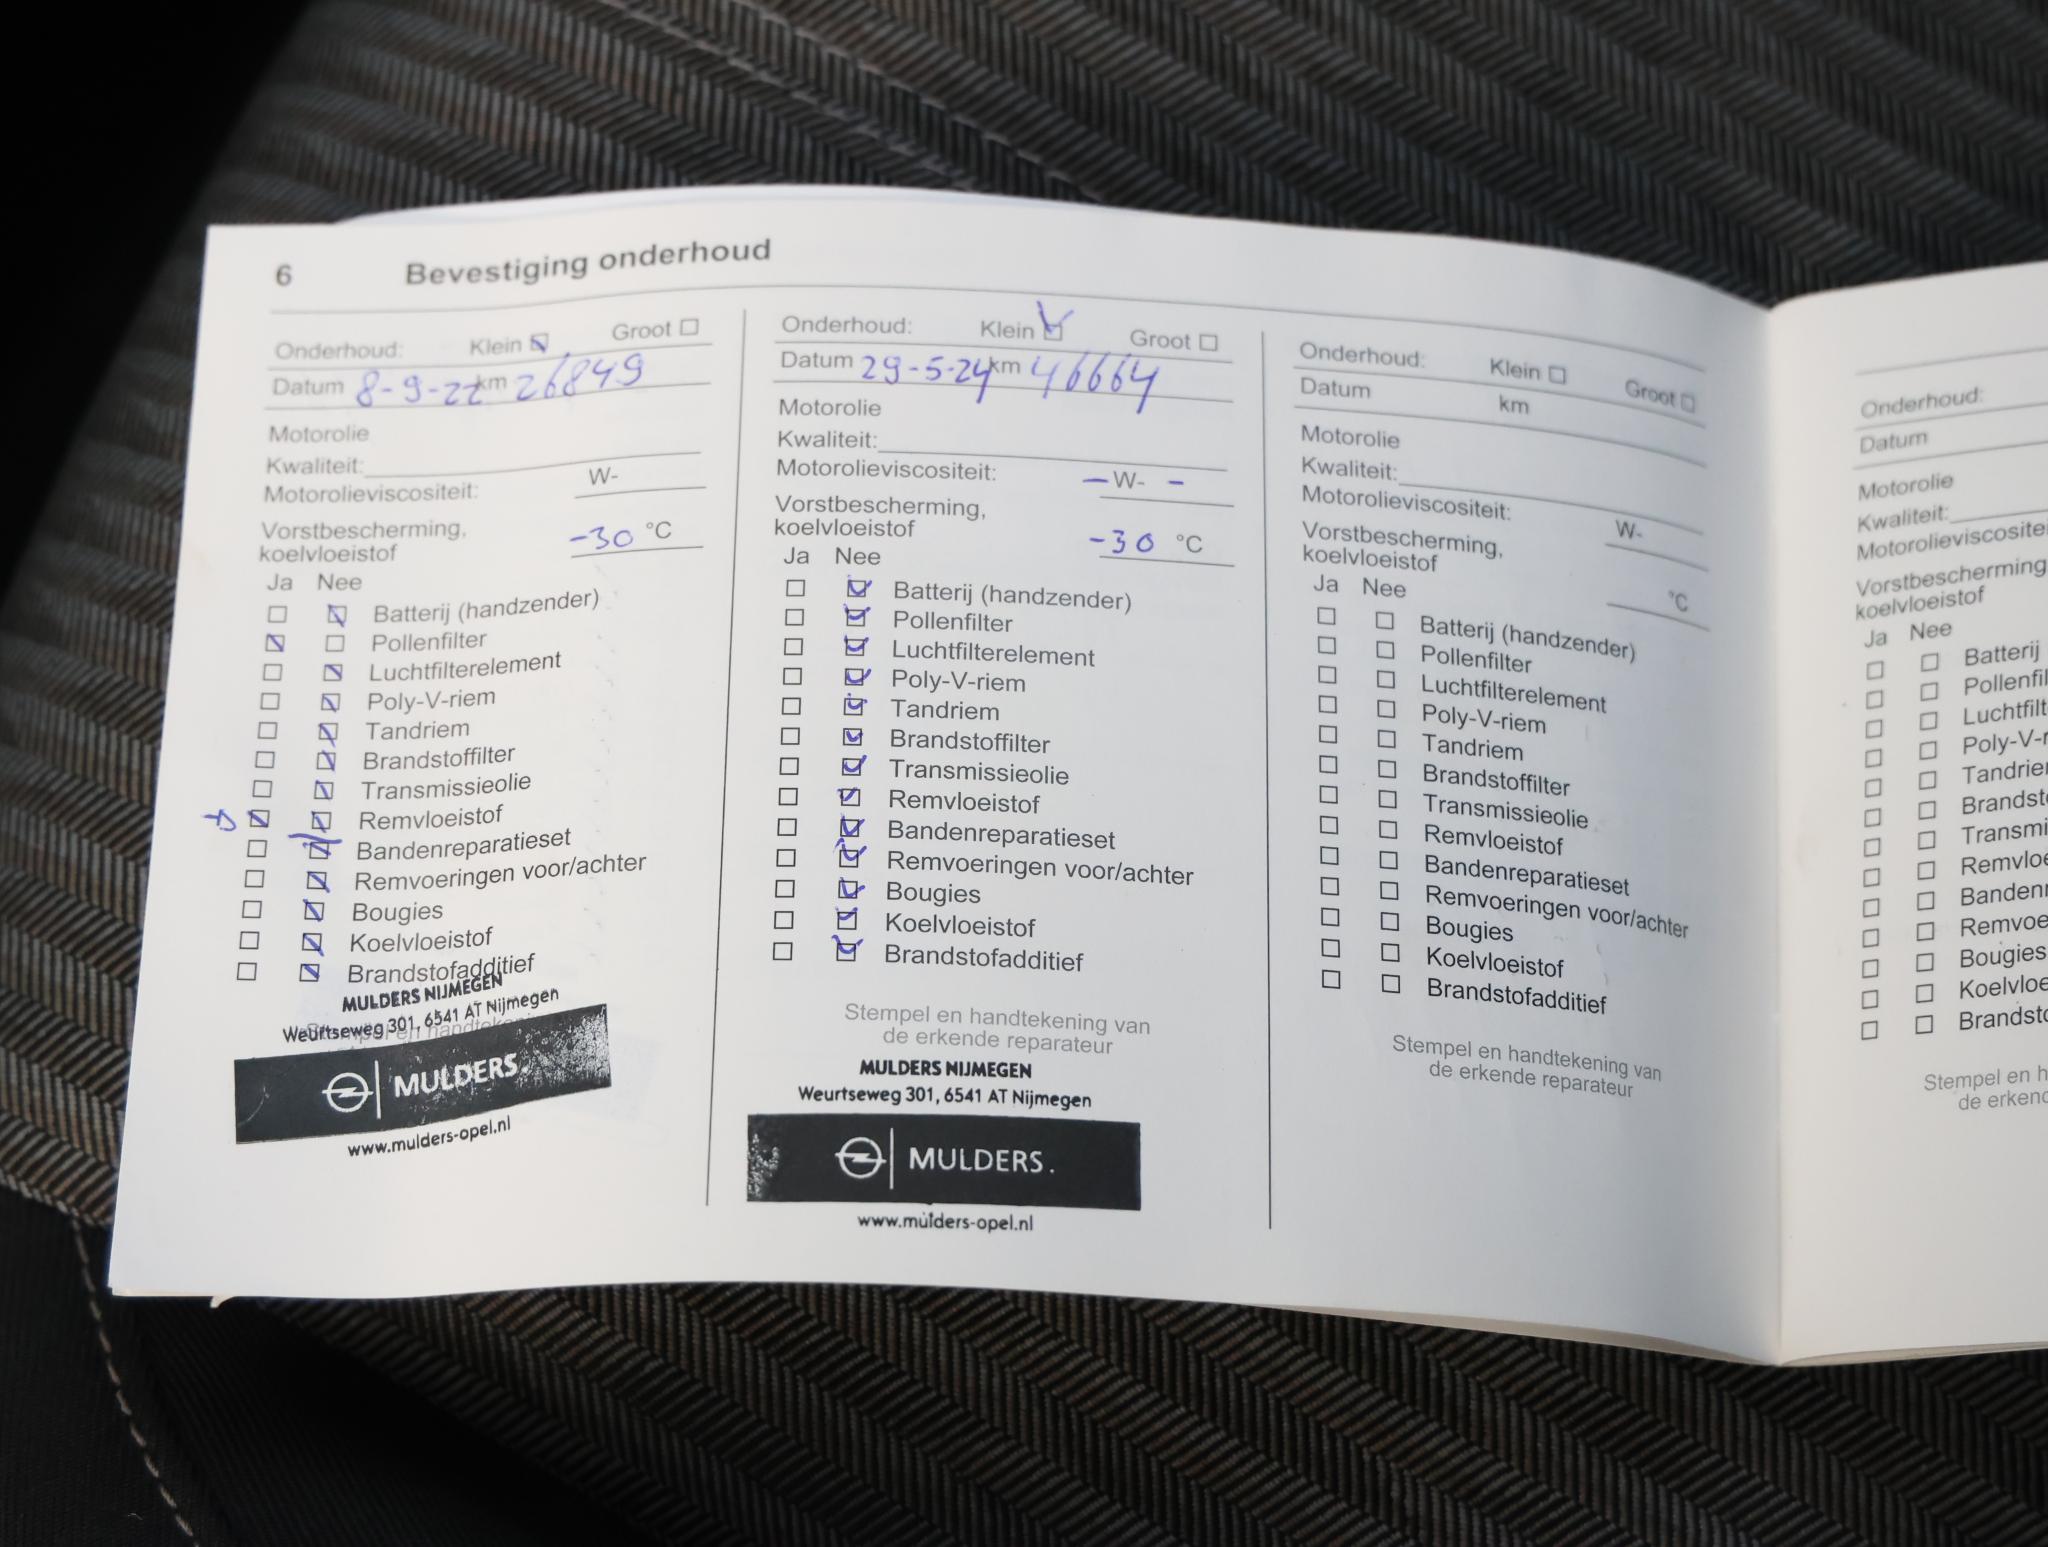 6 Bevestiging onderhoud
Onderhoud: Klein Groot
Datum 8-9-22 km 26849
Motorolie
Kwaliteit:
Motorolieviscositeit: W-
Vorstbescherming,
koelvloeistof -30 °C
Ja Nee
Batterij (handzender)
Pollenfilter
Luchtfilterelement
Poly-V-riem
Tandriem
Brandstoffilter
Transmissieolie
Remvloeistof
Bandenreparatieset
Remvoeringen voor/achter
Bougies
Koelvloeistof
Brandstofadditief
MULDERS NIJMEGEN
Weurtseweg 301, 6541 AT Nijmegen
Stempel en handteken
MULDERS.
www.mulders-opel.nl
Onderhoud: Klein Groot
Datum 29-5-24 km 46664
Motorolie
Kwaliteit:
Motorolieviscositeit: - W- -
Vorstbescherming,
koelvloeistof -30 °C
Ja Nee
Batterij (handzender)
Pollenfilter
Luchtfilterelement
Poly-V-riem
Tandriem
Brandstoffilter
Transmissieolie
Remvloeistof
Bandenreparatieset
Remvoeringen voor/achter
Bougies
Koelvloeistof
Brandstofadditief
Stempel en handtekening van
de erkende reparateur
MULDERS NIJMEGEN
Weurtseweg 301, 6541 AT Nijmegen
MULDERS.
www.mulders-opel.nl
Onderhoud: Klein Groot
Datum km
Motorolie
Kwaliteit:
Motorolieviscositeit: W-
Vorstbescherming,
koelvloeistof °C
Ja Nee
Batterij (handzender)
Pollenfilter
Luchtfilterelement
Poly-V-riem
Tandriem
Brandstoffilter
Transmissieolie
Remvloeistof
Bandenreparatieset
Remvoeringen voor/achter
Bougies
Koelvloeistof
Brandstofadditief
Stempel en handtekening van
de erkende reparateur
Onderhoud:
Datum
Motorolie
Kwaliteit:
Motorolieviscositei
Vorstbescherming
koelvloeistof
Ja Nee
Batterij
Pollenfil
Luchtfilt
Poly-V-r
Tandrie
Brandst
Transmi
Remvloe
Banden
Remvoe
Bougies
Koelvloe
Brandst
Stempel en h
de erken